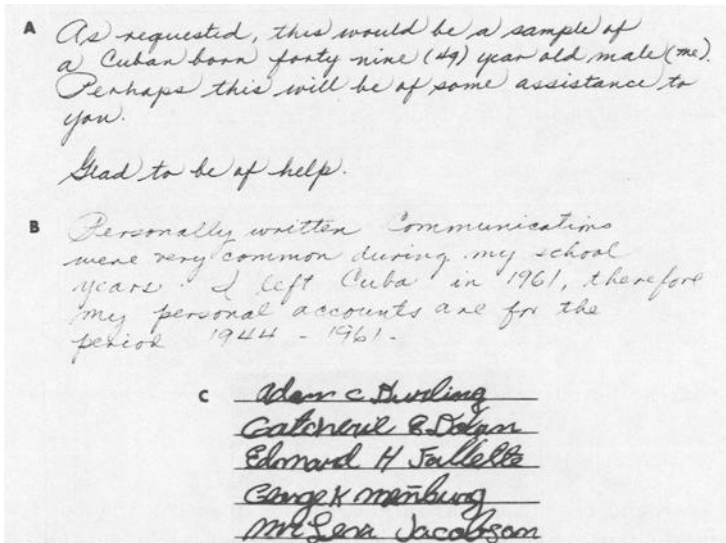 A As requested, this would be a sample of
a Cuban born forty nine (49) year old male (me).
Perhaps this will be of some assistance to
you.
Glad to be of help.
B Personally written Communications
were very common during my school
years. I left Cuba in 1961, therefore
my personal accounts are for the
period 1944 - 1961.
C Adam C Hurling
E Dolan
Edmard H Fallette
George K
Mr Lena Jacobson